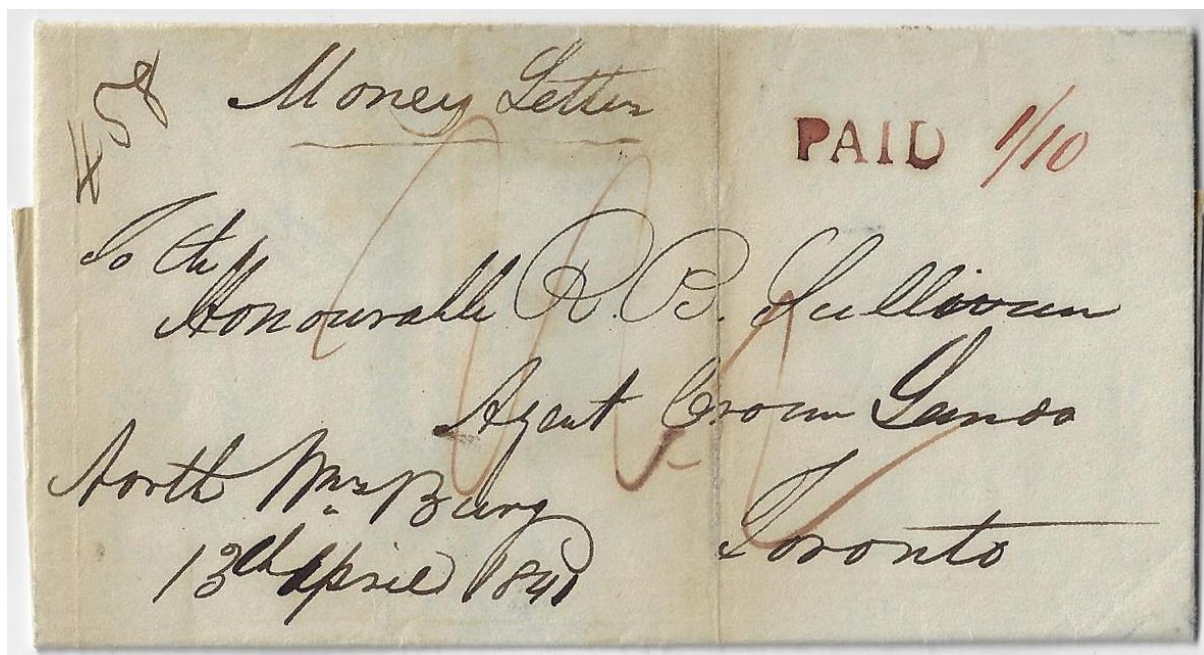 458
Money Letter
PAID 1/10
To the
Honourable R. B. Sullivan
Agent Crown Lands
Toronto
North Wms Burg
13th April 1841